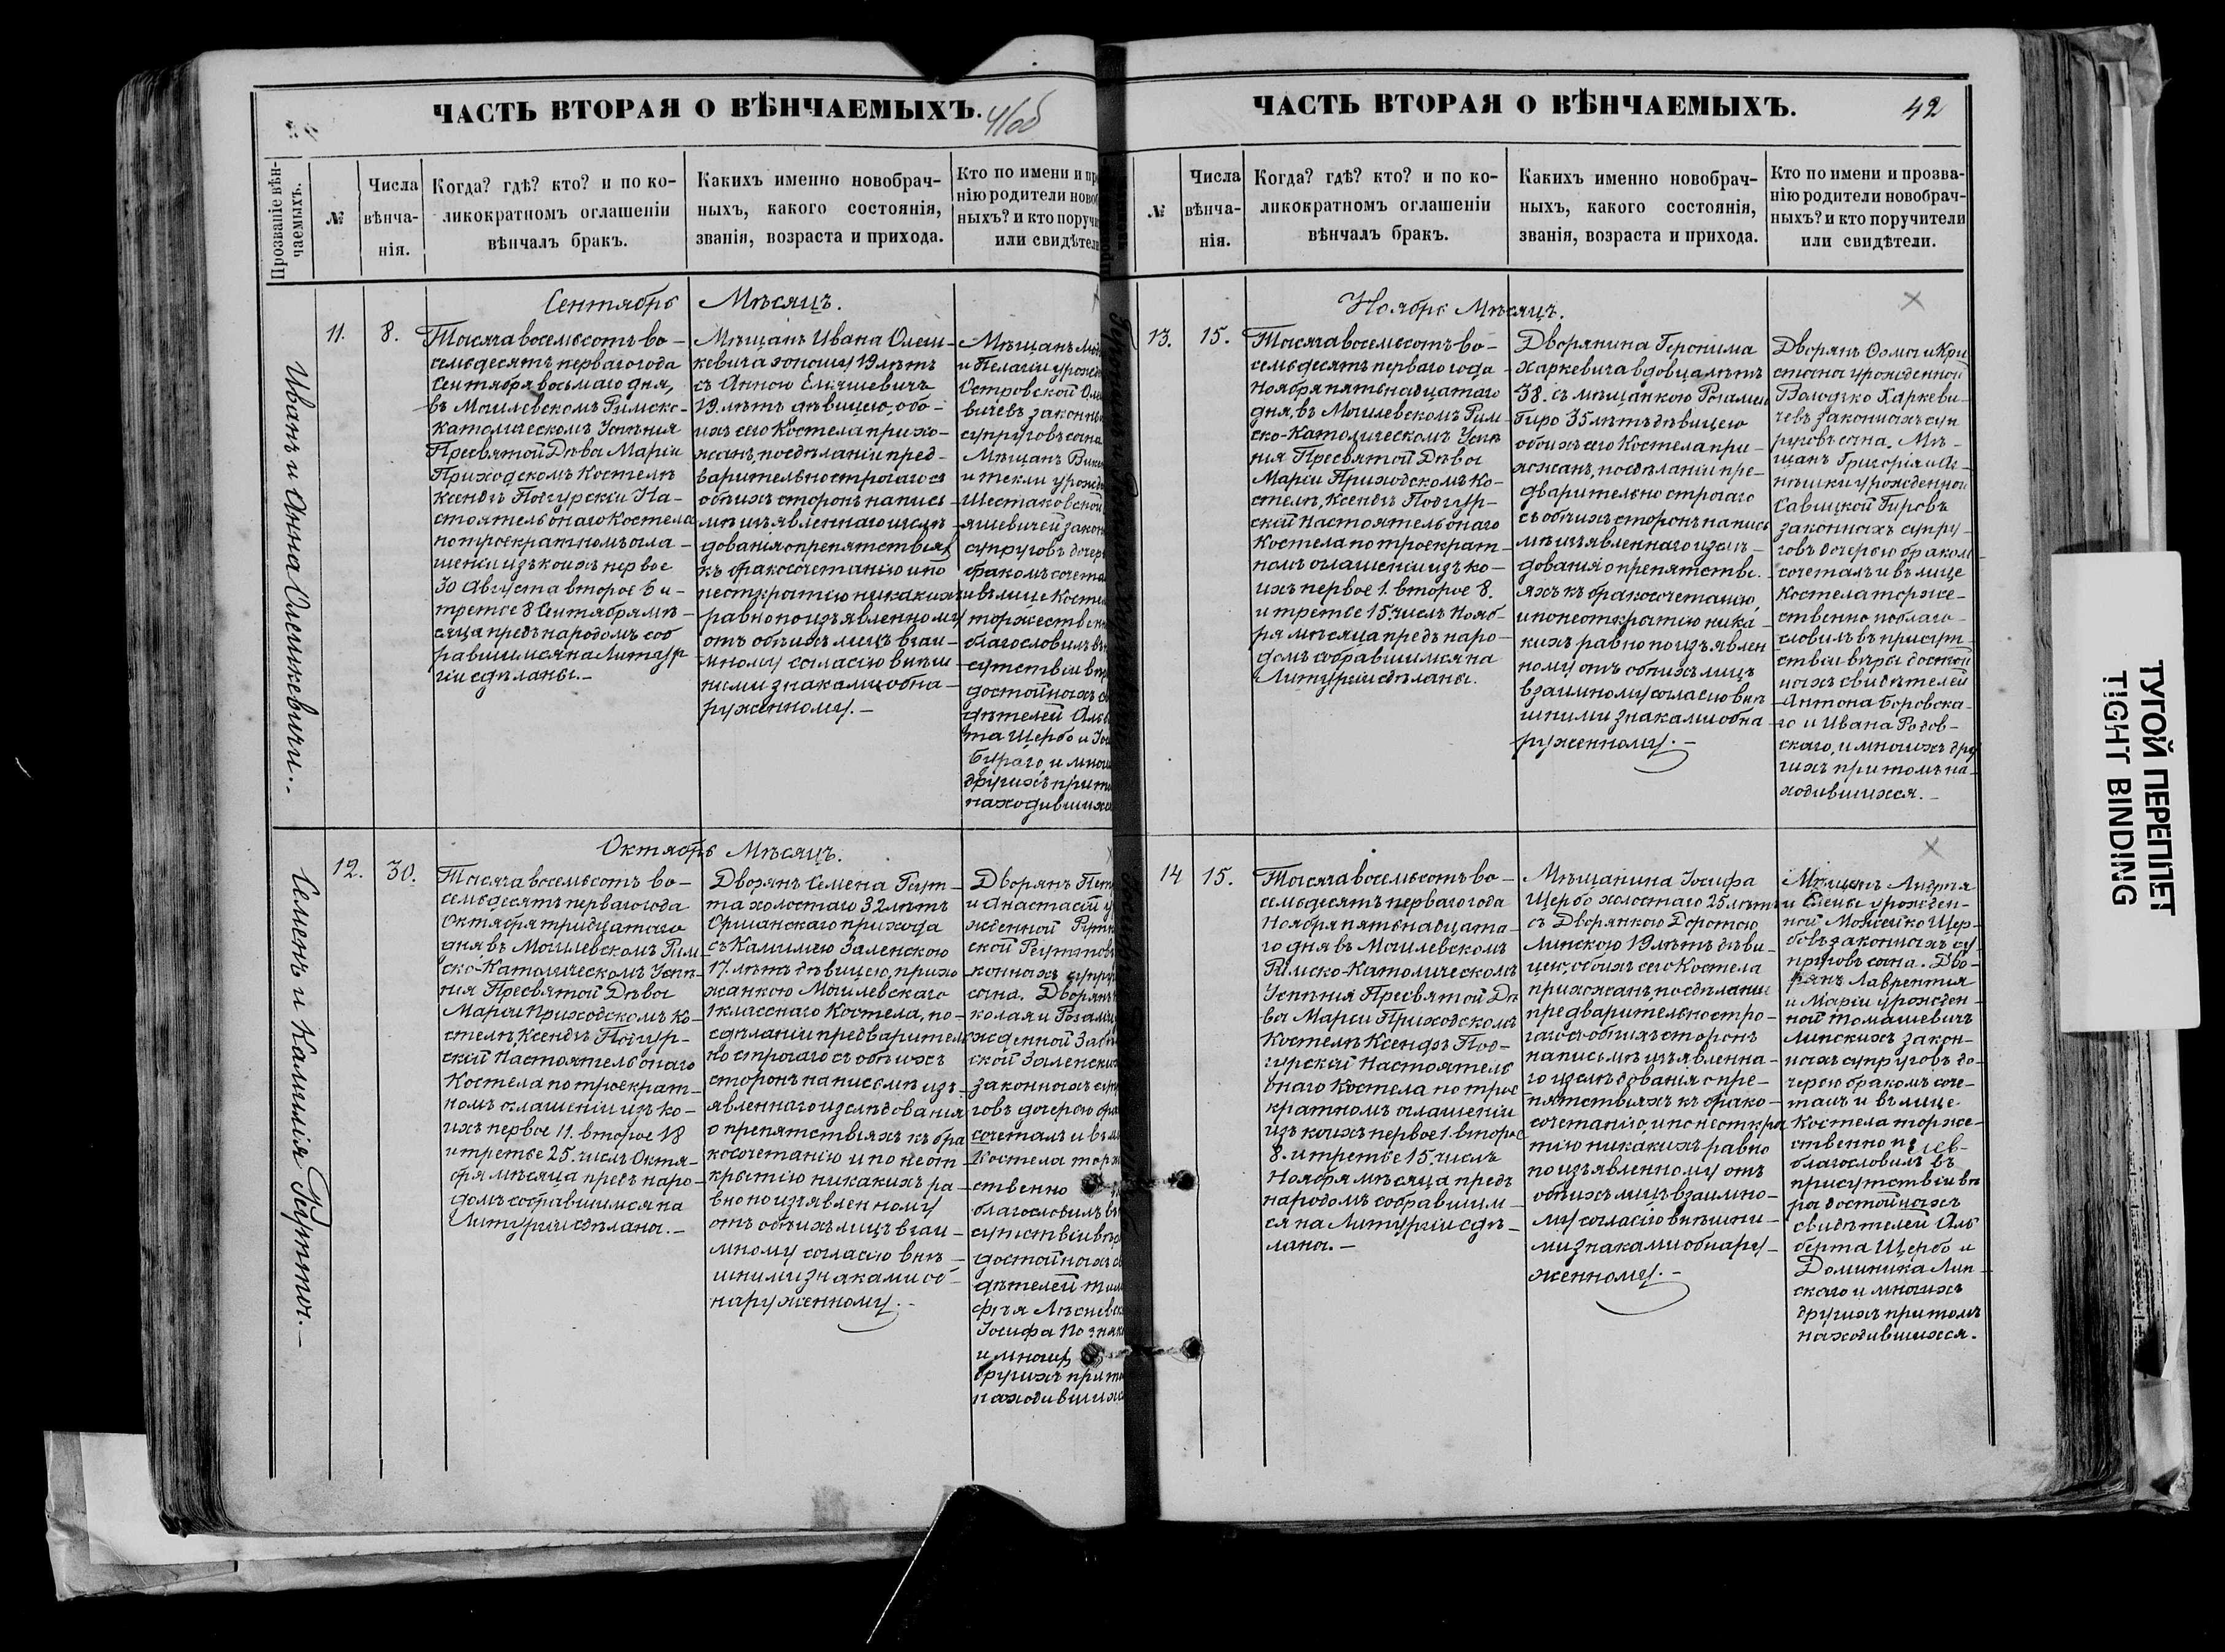 ЧАСТЬ ВТОРАЯ О ВѢНЧАЕМЫХЪ.
41об
Прозваніе вѣн-
чаемыхъ.
№
Числа
вѣнча-
нія.
Когда? гдѣ? кто? и по ко-
ликократномъ оглашеніи
вѣнчалъ бракъ.
Какихъ именно новобрач-
ныхъ, какого состоянія,
званія, возраста и прихода.
Кто по имени и
нію родители
ныхъ? и кто
или
Сентябрь Мѣсяцъ.
Иванъ и Анна Олешкевичи.
11.
8.
Тысяча восемьсотъ во-
семьдесятъ перваго года
Сентября восьмаго дня,
въ Могилевскомъ Римско-
Католическомъ Успѣнія
Пресвятой Дѣвы Маріи
Приходскомъ Костелѣ
Ксендзъ Подгурскій На-
стоятель онаго Костела
по троекратномъ огла-
шеніи изъ коихъ первое
30 Августа второе 6 и
третье 8 Сентября мѣ-
сяца предъ народомъ соб
равшимся на Литур
гіи сдѣланы.-
Мѣщанъ Ивана Олеш-
кевича юношу 19 лѣтъ
съ Анною Ельяшевичъ
19 лѣтъ дѣвицею, обо-
ихъ сего Костела прихо-
жанъ, по сдѣланіи пред-
варительно строгаго съ
обѣихъ сторонъ на пись
мѣ изъявленнаго изслѣ
дованія о препятствіяхъ
къ бракосочетанію и по
неоткрытію никакихъ
равно по изъявленному
отъ обѣихъ лицъ взаи-
мному согласію внѣш
ними знаками обна-
руженному.-
Мѣщанъ
и Пелагіи
Островской
вичевъ
супруговъ сына
Мѣщанъ
и Текли
Шестаковской
яшевичей
супруговъ
бракомъ
и въ лице
благословилъ
сутствіи
достойныхъ
дѣтелей
та Щербо и
Бираго, и
другихъ
находившихся
Октябрь Мѣсяцъ.
Семенъ и Камилія Рутты.-
12.
30.
Тысяча восемьсотъ во-
семьдесятъ перваго года
Октября тридцатаго
дня, въ Могилевскомъ Рим
ско-Католическомъ Успѣ-
нія Пресвятой Дѣвы
Маріи Приходскомъ Ко-
стелѣ, Ксендзъ Подгур-
скій Настоятель онаго
Костела по троекрат-
номъ оглашеніи изъ ко-
ихъ первое 11. второе 18
и третье 25. числъ Октя-
бря мѣсяца предъ наро-
домъ собравшимся на
Литургіи сдѣланы.-
Дворянъ Семена Рут-
та холостаго 32 лѣтъ
Оршанскаго прихода
съ Камилею Заленскою
17. лѣтъ дѣвицею, прихо
жанкою Могилевскаго
1 класснаго Костела, по-
сдѣланіи предваритель
но строгаго съ обѣихъ
сторонъ на письмѣ изъ-
явленнаго изслѣдованія
о препятствіяхъ къ бра
косочетанію и по неот
крытію никакихъ ра-
вно по изъявленному
отъ обѣихъ лицъ взаи-
мному согласію внѣ-
шними знаками об-
наруженному.-
Дворянъ
и Анастасіи
жденной
ской
конныхъ
сына. Дворянъ
колая и
жденной
ской Заленскихъ
законныхъ
говъ дочерью
сочеталъ и въ
Костела
ственно
благословилъ
сутствіи
достойныхъ
дѣтелей
фѣя
Іосифа
и
другихъ
находившихся
ЧАСТЬ ВТОРАЯ О ВѢНЧАЕМЫХЪ.
42
№
Числа
вѣнча-
нія.
Когда? гдѣ? кто? и по ко-
ликократномъ оглашеніи
вѣнчалъ бракъ.
Какихъ именно новобрач-
ныхъ, какого состоянія,
званія, возраста и прихода.
Кто по имени и прозва-
нію родители новобрач-
ныхъ? и кто поручители
или свидѣтели.
Ноябрь Мѣсяцъ.
13.
15.
Тысяча восемьсотъ во-
семьдесятъ перваго года
Ноября пятьнадцатаго
дня, въ Могилевскомъ Рим
ско-Католическомъ Успѣ
нія Пресвятой Дѣвы
Маріи Приходскомъ Ко-
стелѣ, Ксендзъ Подгур-
скій Настоятель онаго
Костела по троекрат-
номъ оглашеніи изъ ко-
ихъ первое 1. второе 8.
и третье 15 числъ Нояб-
ря мѣсяца предъ наро-
домъ собравшимся на
Литургіи сдѣланы.
Дворянина Геронима
Харкевича вдовца лѣтъ
38. съ мѣщанкою Розаліею
Гиро 35 лѣтъ дѣвицею
обоихъ сего Костела при-
хожанъ, по сдѣланіи пре-
дварительно строгаго
съ обѣихъ сторонъ на пись
мѣ изъявленнаго изслѣ-
дованія о препятстві-
яхъ къ бракосочетанію,
и по неоткрытію ника-
кихъ равно по изъявлен
ному отъ обѣихъ лицъ
взаимному согласію внѣ
шними знаками обна-
руженному.-
Дворянъ Ѳомы и Кри
стины урожденной
Володзко Харкеви-
чевъ законныхъ суп
руговъ сына, Мѣ-
щанъ Григорія и Аг-
нѣшки урожденной
Савицкой Гировъ
законныхъ супру-
говъ дочерью бракомъ
сочеталъ и въ лице
Костела торже-
ственно поблаго-
словилъ въ присут-
ствіи вѣры достой
ныхъ свидѣтелей
Антона Боровска-
го и Ивана Родов-
скаго, и многихъ дру
гихъ при томъ на-
ходившихся.-
14
15.
Тысяча восемьсотъ во-
семьдесятъ перваго года
Ноября пятьнадцата-
го дня въ Могилевскомъ
Римско-Католическомъ
Успѣнія Пресвятой Дѣ
вы Маріи Приходскомъ
Костелѣ Ксендзъ Под-
гурскій Настоятель
онаго Костела по трое
кратномъ оглашеніи
изъ коихъ первое 1. второе
8. и третье 15 числъ
Ноября мѣсяца предъ
народомъ собравшим-
ся на Литургіи сдѣ-
ланы.-
Мѣщанина Іосифа
Щербо холостаго 25 лѣтъ
съ Дворянкою Доротою
Липскою 19 лѣтъ дѣви-
цею, обоихъ сего Костела
прихожанъ, по сдѣланіи
предварительно стро-
гаго съ обѣихъ сторонъ
на письмѣ изъявленна-
го изслѣдованія о пре-
пятствіяхъ къ брако-
сочетанію, и по неоткры
тію никакихъ равно
по изъявленному отъ
обѣихъ лицъ взаимно-
му согласію внѣшни-
ми знаками обнару-
женному.-
Мѣщанъ Андрея
и Елены урожден-
ной Можейко Щер-
бовъ законныхъ су-
пруговъ сына. Дво-
рянъ Лаврентія
и Маріи урожден-
ной Томашевичъ
Липскихъ закон-
ныхъ супруговъ до-
черью бракомъ соче-
талъ и въ лице
Костела торже-
ственно
благословилъ въ
присутствіи вѣ
ры достойныхъ
свидѣтелей Аль
берта Щербо и
Доминика Лип-
скаго и многихъ
другихъ при томъ
находившихся.
ТУГОЙ ПЕРЕПЛЕТ
TIGHT BINDING